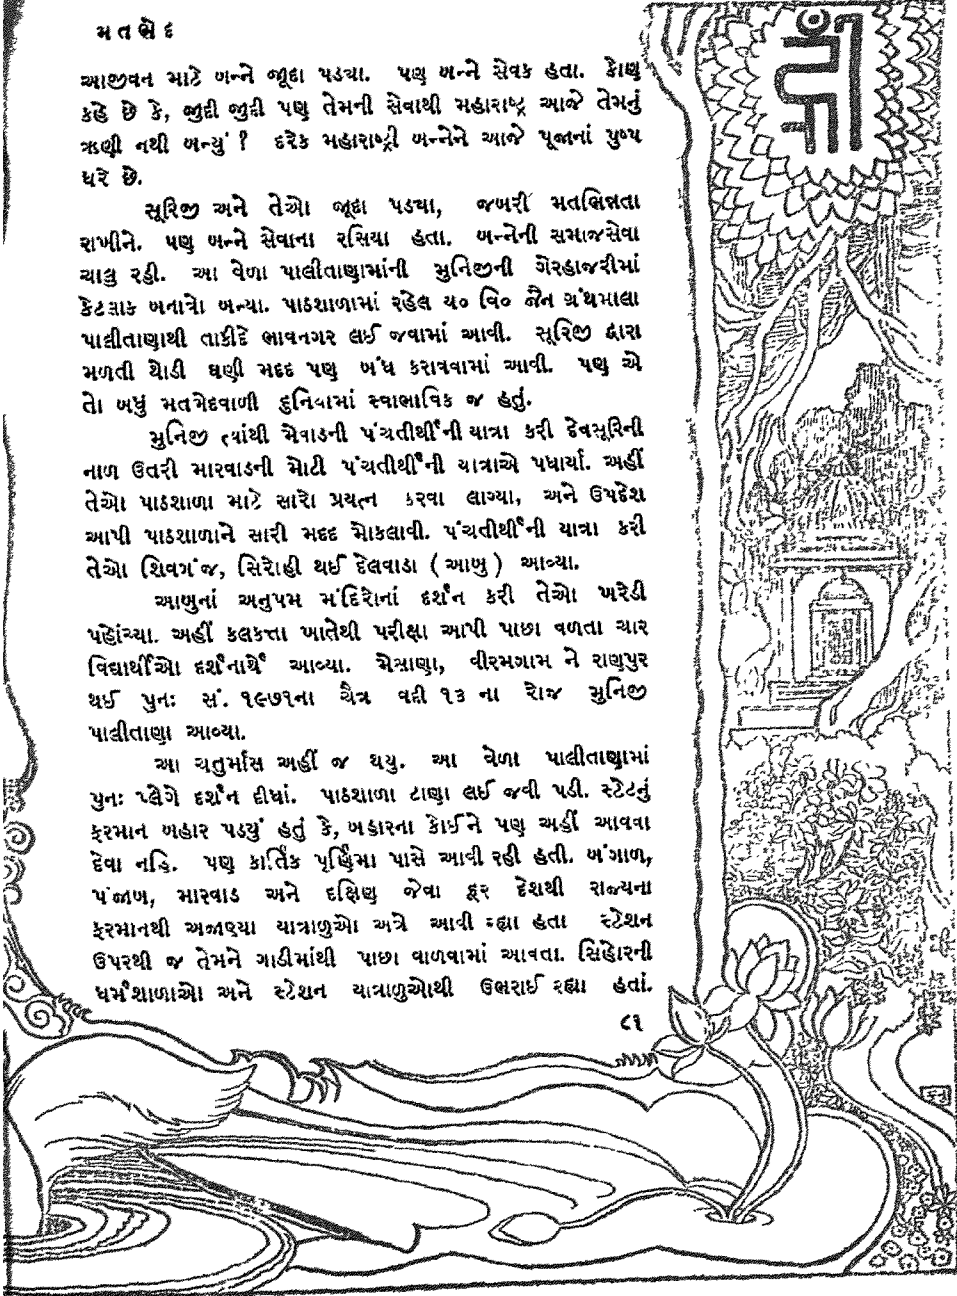 મતભેદ
આજીવન માટે બન્ને જૂદા પડયા. પણ બન્ને સેવક હતા. કોણ
કહે છે કે, જીુદી જીુદી પણ તેમની સેવાથી મહારાષ્ટ્ર આજે તેમનું
ઋણી નથી બન્યું ? દરેક મહારાષ્ટ્રી બન્નેને આજે પૂજાનાં પુષ્પ
ધરે છે.
સૂરિજી અને તેઓ જૂદા પડયા, જબરી મતભિન્નતા
રાખીને. પણ બન્ને સેવાના રસિયા હતા. બન્નેની સમાજસેવા
ચાલુ રહી. આ વેળા પાલીતાણામાંની મુનિજીની ગેરહાજરીમાં
કેટલાક બનાવો બન્યા. પાઠશાળામાં રહેલ ય૦ વિ૦ જૈન ગ્રંથમાલા
પાલીતાણાથી તાકીદે ભાવનગર લઈ જવામાં આવી. સૂરિજી દ્વારા
મળતી થોડી ઘણી મદદ પણ બંધ કરાવવામાં આવી. પણ એ
તો બધું મતભેદવાળી દુનિયામાં સ્વાભાવિક જ હતું.
મુનિજી ત્યાંથી મેવાડની પંચતીર્થીની યાત્રા કરી દેવસૂરિની
નાળ ઉતરી મારવાડની મોટી પંચતીર્થીની યાત્રાએ પધાર્યા. અહીં
તેઓ પાઠશાળા માટે સારો પ્રયત્ન કરવા લાગ્યા, અને ઉપદેશ
આપી પાઠશાળાને સારી મદદ મોકલાવી. પંચતીર્થીની યાત્રા કરી
તેઓ શિવગંજ, સિરોહી થઈ દેલવાડા ( આબુ ) આવ્યા.
આબુનાં અનુપમ મંદિરોનાં દર્શન કરી તેઓ ખરેડી
પહોંચ્યા. અહીં કલકત્તા ખાતેથી પરીક્ષા આપી પાછા વળતા ચાર
વિદ્યાર્થીઓ દર્શનાર્થે આવ્યા. મેસાણા, વીરમગામ ને રાણપુર
થઈ પુનઃ સં. ૧૯૭૧ના ચૈત્ર વદી ૧૩ ના રોજ મુનિજી
પાલીતાણા આવ્યા.
આ ચતુર્માસ અહીં જ થયુ. આ વેળા પાલીતાણામાં
પુનઃ પ્લેગે દર્શન દીધાં. પાઠશાળા ટાણા લઈ જવી પડી. સ્ટેટનું
ફરમાન બહાર પડયું હતું કે, બહારના કોઈને પણ અહીં આવવા
દેવા નહિ. પણ કાર્તિક પૂર્ણિમા પાસે આવી રહી હતી. બંગાળ,
પંજાબ, મારવાડ અને દક્ષિણ જેવા દૂર દેશથી રાજ્યના
ફરમાનથી અજાણ્યા યાત્રાળુઓ અત્રે આવી રહ્યા હતા સ્ટેશન
ઉપરથી જ તેમને ગાડીમાંથી પાછા વાળવામાં આવતા. સિહોરની
ધર્મશાળાઓ અને સ્ટેશન યાત્રાળુઓથી ઉભરાઈ રહ્યા હતાં.
૮૧